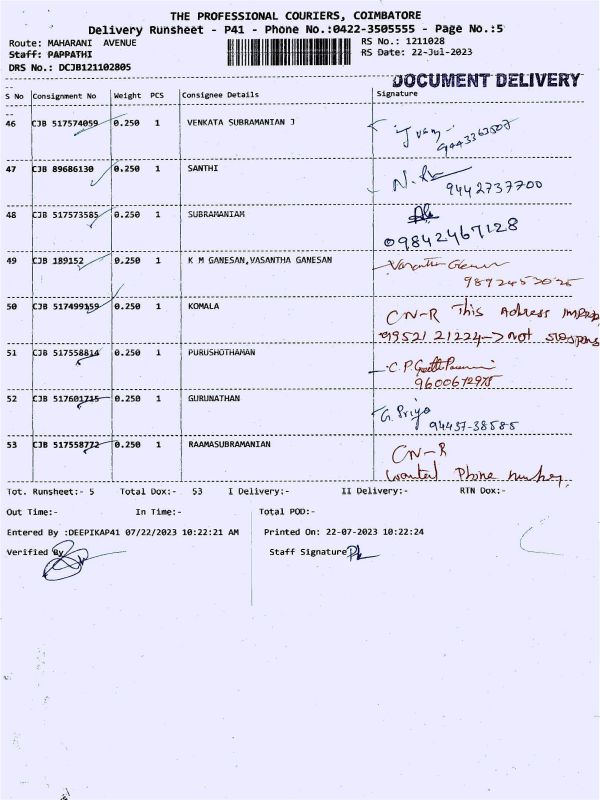 THE PROFESSIONAL COURIERS, COIMBATORE
Delivery Runsheet - P41 - Phone No.:0422-3505555 - Page No.:5
Route: MAHARANI AVENUE
RS No.: 1211028
Staff: PAPPATHI
RS Date: 22-Jul-2023
DRS No.: DCJB121102805
DOCUMENT DELIVERY
S No Consignment No Weight PCS Consignee Details Signature
46 CJB 517574059 0.250 1 VENKATA SUBRAMANIAN J
9443363507
47 CJB 89686130 0.250 1 SANTHI
9442737700
48 CJB 517573585 0.250 1 SUBRAMANIAM
09842467128
49 CJB 189152 0.250 1 K M GANESAN,VASANTHA GANESAN
Vasantha Ganesan
50 CJB 517499159 0.250 1 KOMALA
CN-R This Address
99521 21224-> not
51 CJB 517558814 0.250 1 PURUSHOTHAMAN
C.P.
52 CJB 517601715 0.250 1 GURUNATHAN
G. Priya
94437-38585
53 CJB 517558772 0.250 1 RAAMASUBRAMANIAN
CN-R
wanted Phone number,
Tot. Runsheet:- 5 Total Dox:- 53 I Delivery:- II Delivery:- RTN Dox:-
Out Time:- In Time:- Total POD:-
Entered By :DEEPIKAP41 07/22/2023 10:22:21 AM Printed On: 22-07-2023 10:22:24
Verified By Staff Signature